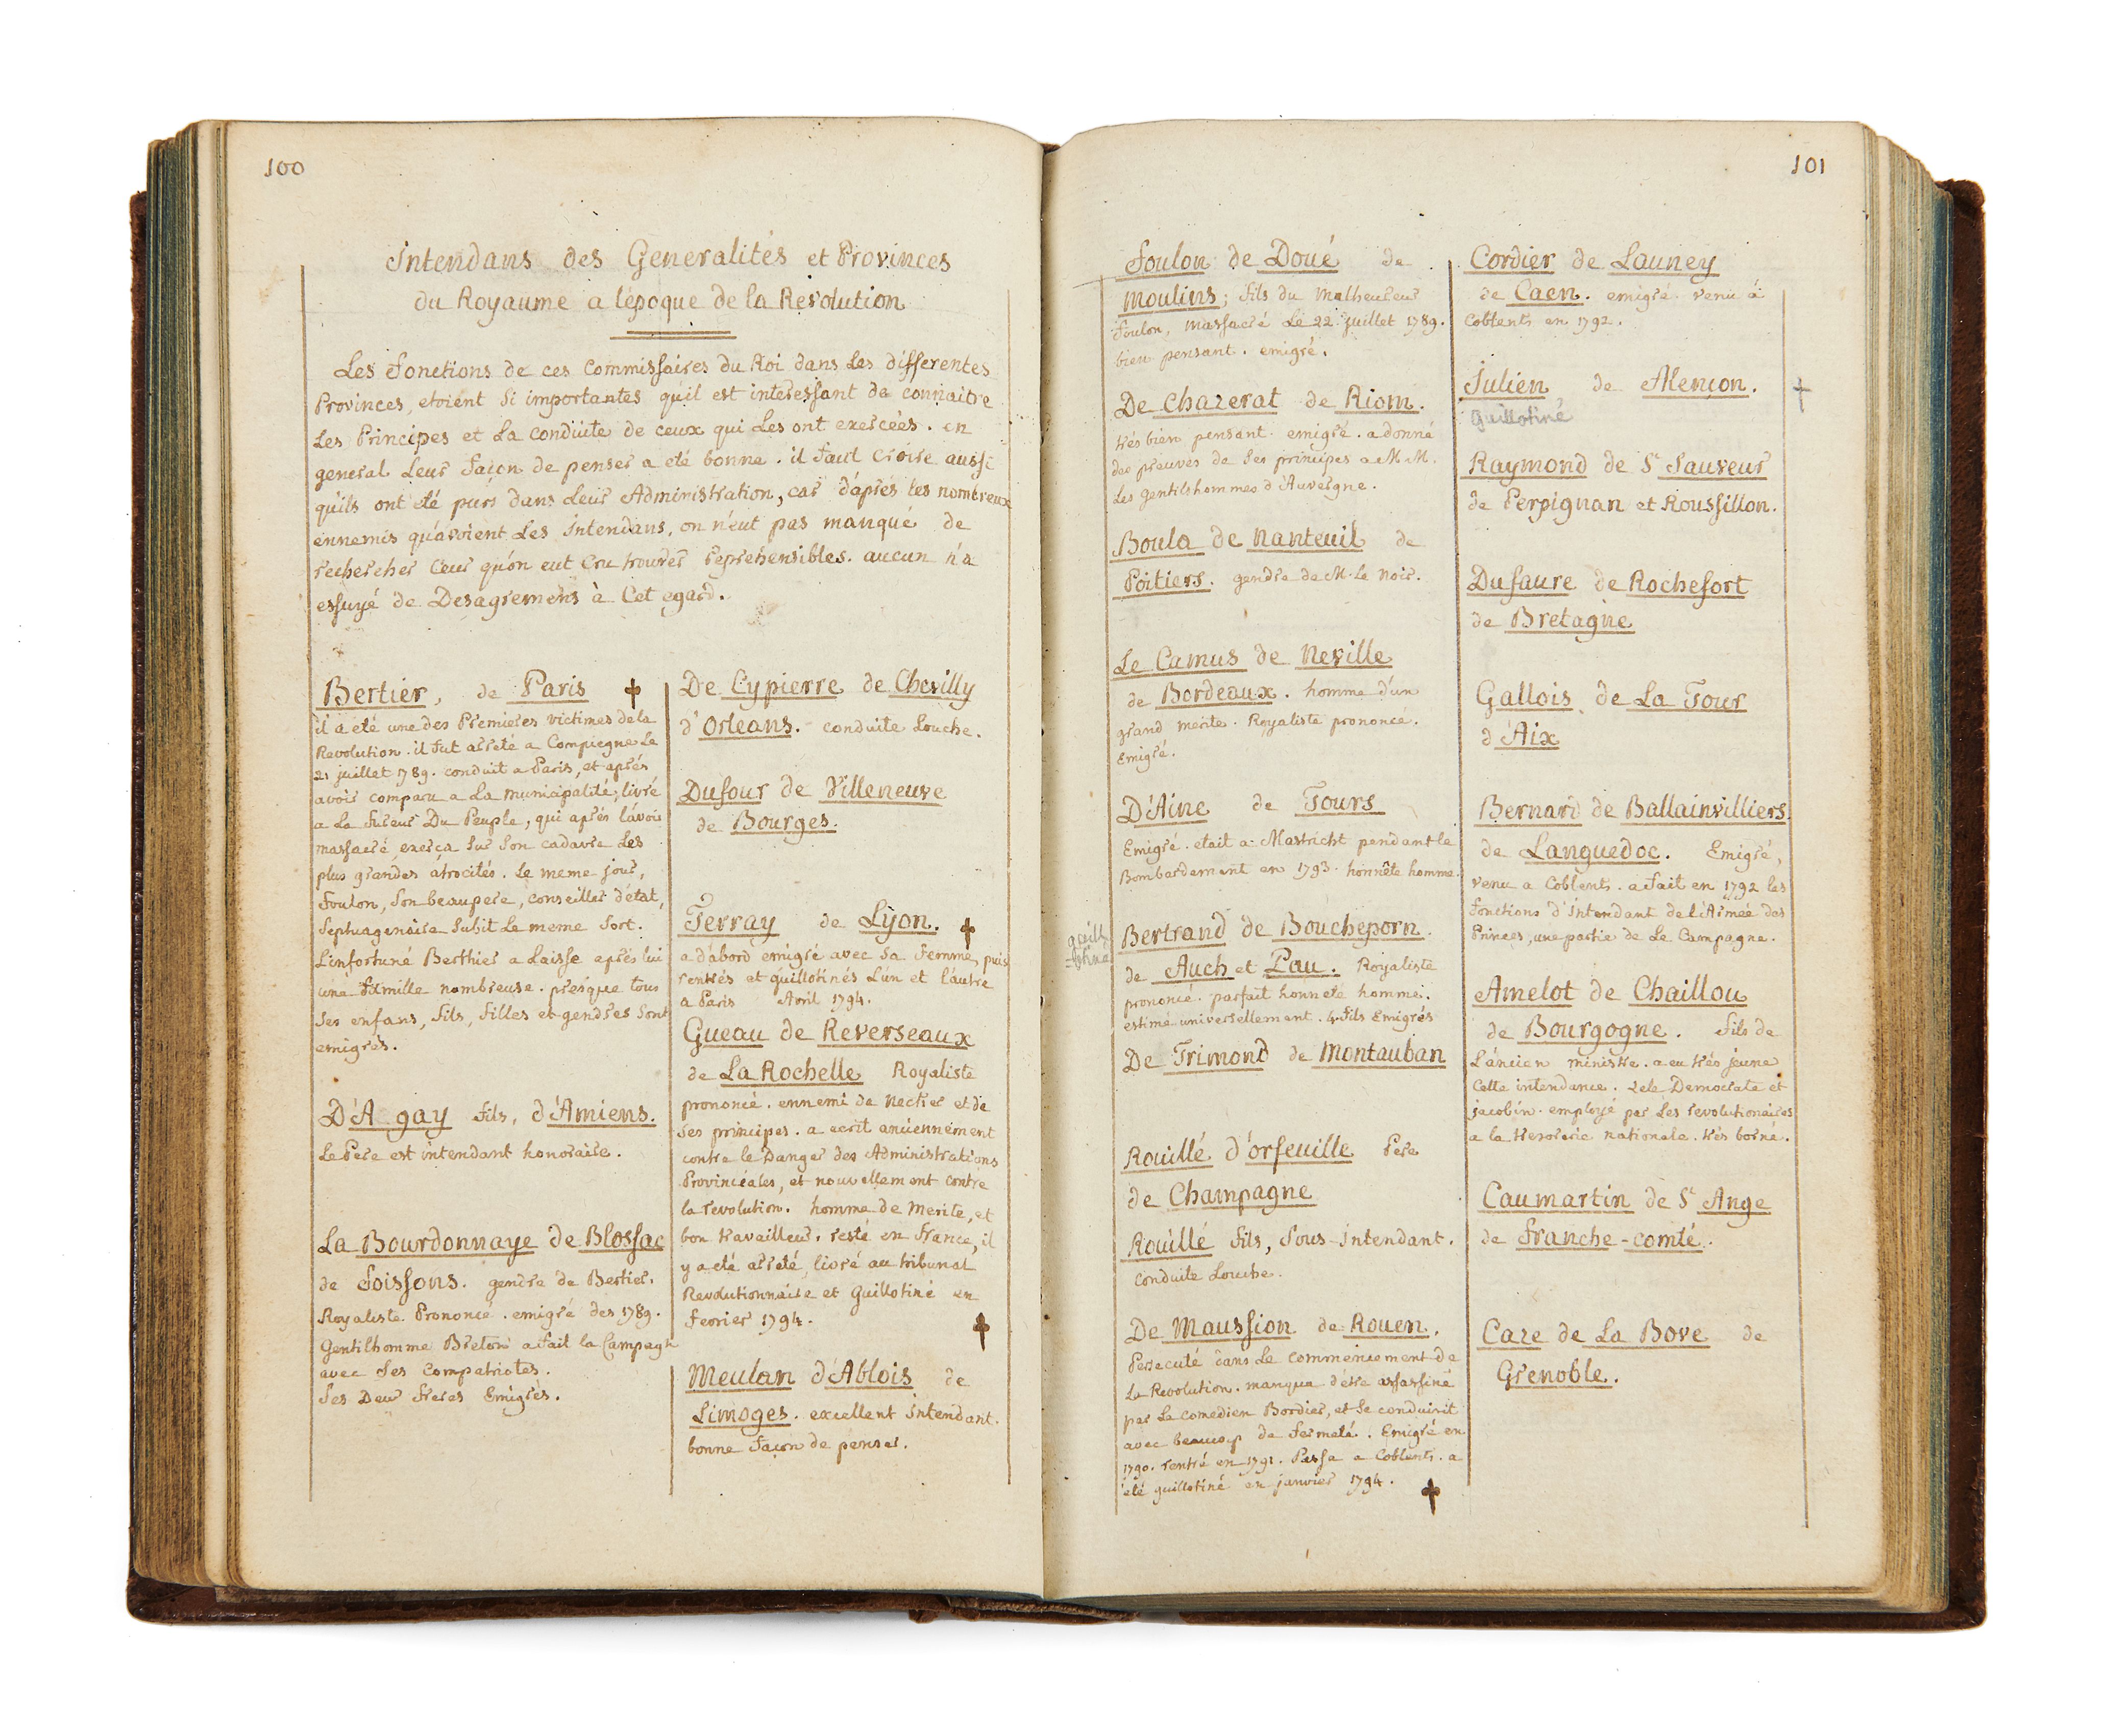 100
Intendans des Generalités et Provinces
du Royaume a l'époque de la Revolution
Les fonctions de ces Commissaires du Roi dans Les differentes
Provinces, etoient Si importantes qu'il est interessant de connaitre
Les Principes et La Conduite de ceux qui Les ont exercées. en
general Leur façon de penser a eté bonne. il faut croire aussi
qu'ils ont eté purs dans Leur Administration, car d'après les nombreux
ennemis qu'avoient Les Intendans, on n'eut pas manqué de
rechercher Ceux qu'on eut Cru trouver reprehensibles. aucun n'a
essuyé de Desagremens à Cet egard.
Bertier, de Paris ✝
il a eté une des Premieres victimes de la
Revolution. il fut arreté a Compiegne Le
21 juillet 1789. conduit a Paris, et après
avoir comparu a La municipalité, livré
a La fureur Du Peuple, qui après l'avoir
massacré, exerça sur Son cadavre Les
plus grandes atrocités. Le meme jour,
Foulon, Son beaupere, conseiller d'état,
Septuagenaire Subit Le meme Sort.
L'infortuné Berthier a Laissé après lui
une famille nombreuse. presque tous
Ses enfans, fils, filles et gendres Sont
emigrés.
D'Agay fils, d'Amiens.
Le Pere est intendant honoraire.
La Bourdonnaye de Blossac
de Soissons. gendre de Bertier.
Royaliste Prononcé. emigré des 1789.
Gentilhomme Breton a fait la Campagn
avec Ses Compatriotes.
Ses Deux freres Emigrés.
De Cypierre de Chevilly
d'Orleans. conduite Louche.
Dufour de Villeneuve
de Bourges.
Terray de Lyon. ✝
a d'abord emigré avec Sa femme, puis
rentrés et guillotinés L'un et l'autre
a Paris Avril 1794.
Gueau de Reverseaux
de La Rochelle Royaliste
prononcé. ennemi de Necker et de
Ses principes. a ecrit anciennement
contre le Danger des Administrations
Provinciales, et nouvellement contre
la revolution. homme de Merite, et
bon travailleur. resté en France, il
y a eté arreté, livré au tribunal
Revolutionnaire et Guillotiné en
Fevrier 1794. ✝
Meulan d'Ablois de
Limoges. excellent intendant.
bonne façon de penser.
101
Foulon de Doué de
Moulins; fils du Malheureux
Foulon, Massacré Le 22 juillet 1789.
bien pensant. emigré.
De Chazerat de Riom.
très bien pensant. emigré. a donné
des preuves de Ses principes a M M.
Les Gentilshommes d'Auvergne.
Boula de Nanteuil de
Poitiers. gendre de M. Le Noir.
Le Camus de Neville
de Bordeaux. homme d'un
grand merite. Royaliste prononcé.
Emigré.
D'Aine de Tours
Emigré. etait a Mastricht pendant le
Bombardement en 1793. honnête homme.
guillo
-tiné
Bertrand de Boucheporn.
de Auch et Pau. Royaliste
prononcé. parfait honneté homme.
estimé universellement. 4 fils Emigrés
De Trimond de Montauban
Rouillé d'orfeuille Pere
de Champagne
Rouillé fils, Sous-Intendant.
Conduite Louche.
De Maussion de Rouen.
Persecuté dans Le Commencement de
La Revolution. manqua d'être assassiné
par Le comedien Bordier, et Se conduisit
avec beaucop de fermeté. Emigré en
1790. rentré en 1791. Passa a Coblents. a
été guillotiné en janvier 1794. ✝
Cordier de Launey
de Caen. emigré. venu à
Coblents en 1792.
Julien de Alençon. ✝
Guillotiné
Raymond de St Sauveur
de Perpignan et Roussillon.
Dufaure de Rochefort
de Bretagne
Gallois de La Tour
d'Aix
Bernard de Ballainvilliers
de Languedoc. Emigré,
venu a Coblents. a fait en 1792 les
fonctions d'Intendant de l'Armée des
Princes, une partie de Le Campagne.
Amelot de Chaillou
de Bourgogne. fils de
L'ancien ministre. a eu très jeune
Cette intendance. Zelé Democrate et
jacobin. employé par Les revolutionaires
a la tresorerie nationale. très borné.
Caumartin de St Ange
de Franche-comté.
Caze de La Bove de
Grenoble.